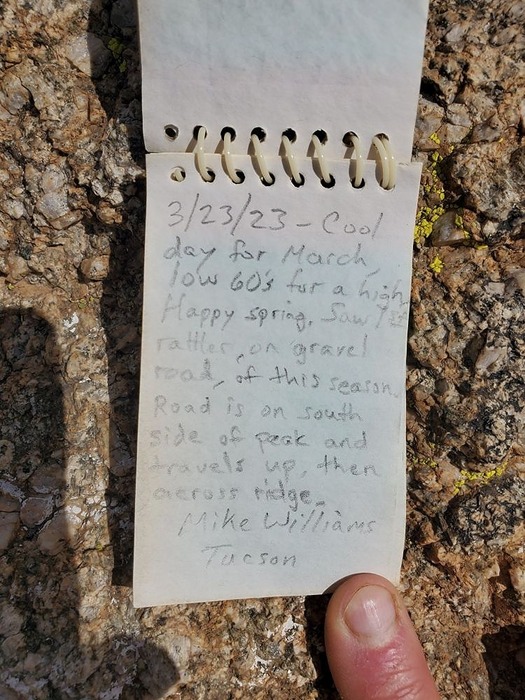 3/23/23 - Cool
day for March,
low 60's for a high.
Happy spring. Saw 1st
rattler, on gravel
road, of this season.
Road is on south
side of peak and
travels up, then
across ridge.
Mike Williams
Tucson